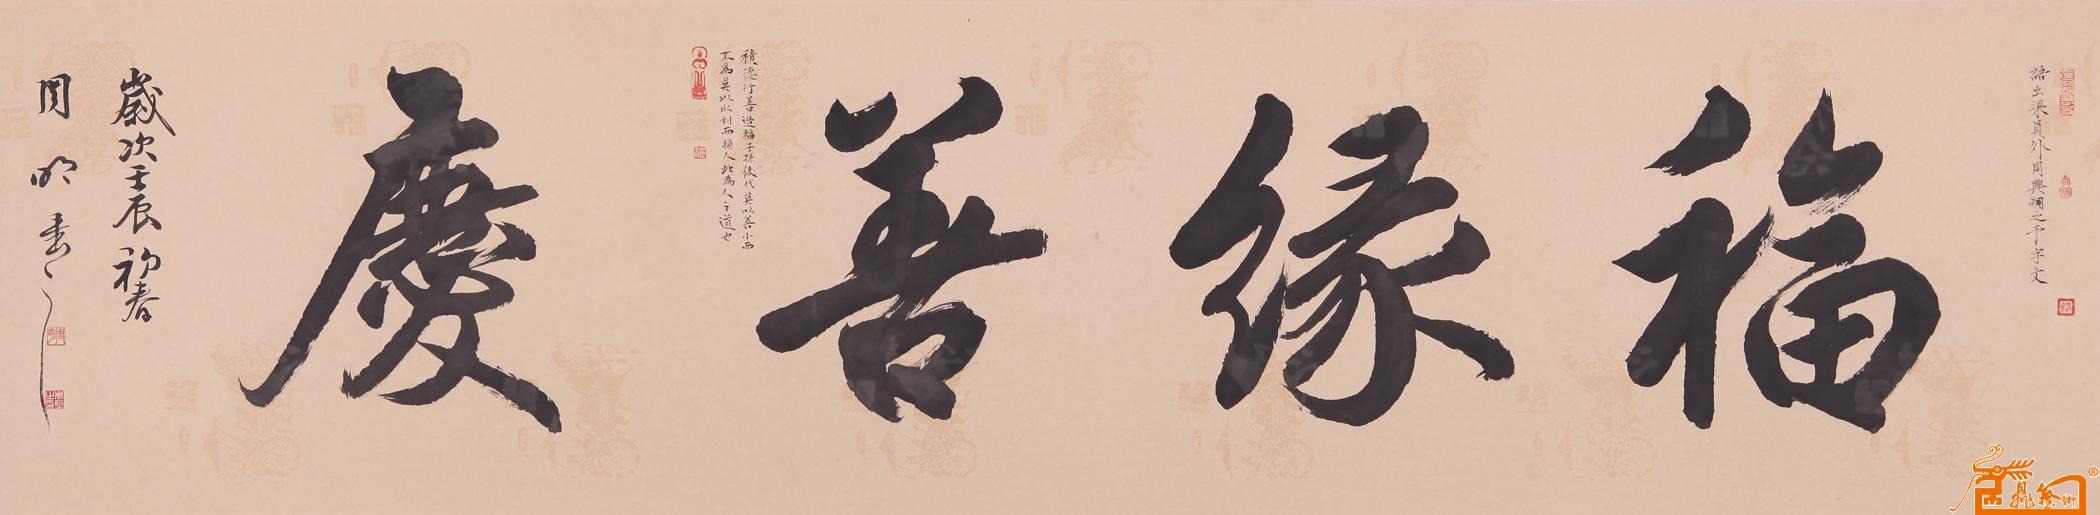 語出梁員外周興嗣之千字文
福緣善慶
積德行善遊福子孫後代莫以善小而
不為莫以取利而損人此為人之道也
歲次壬辰初春
周明書